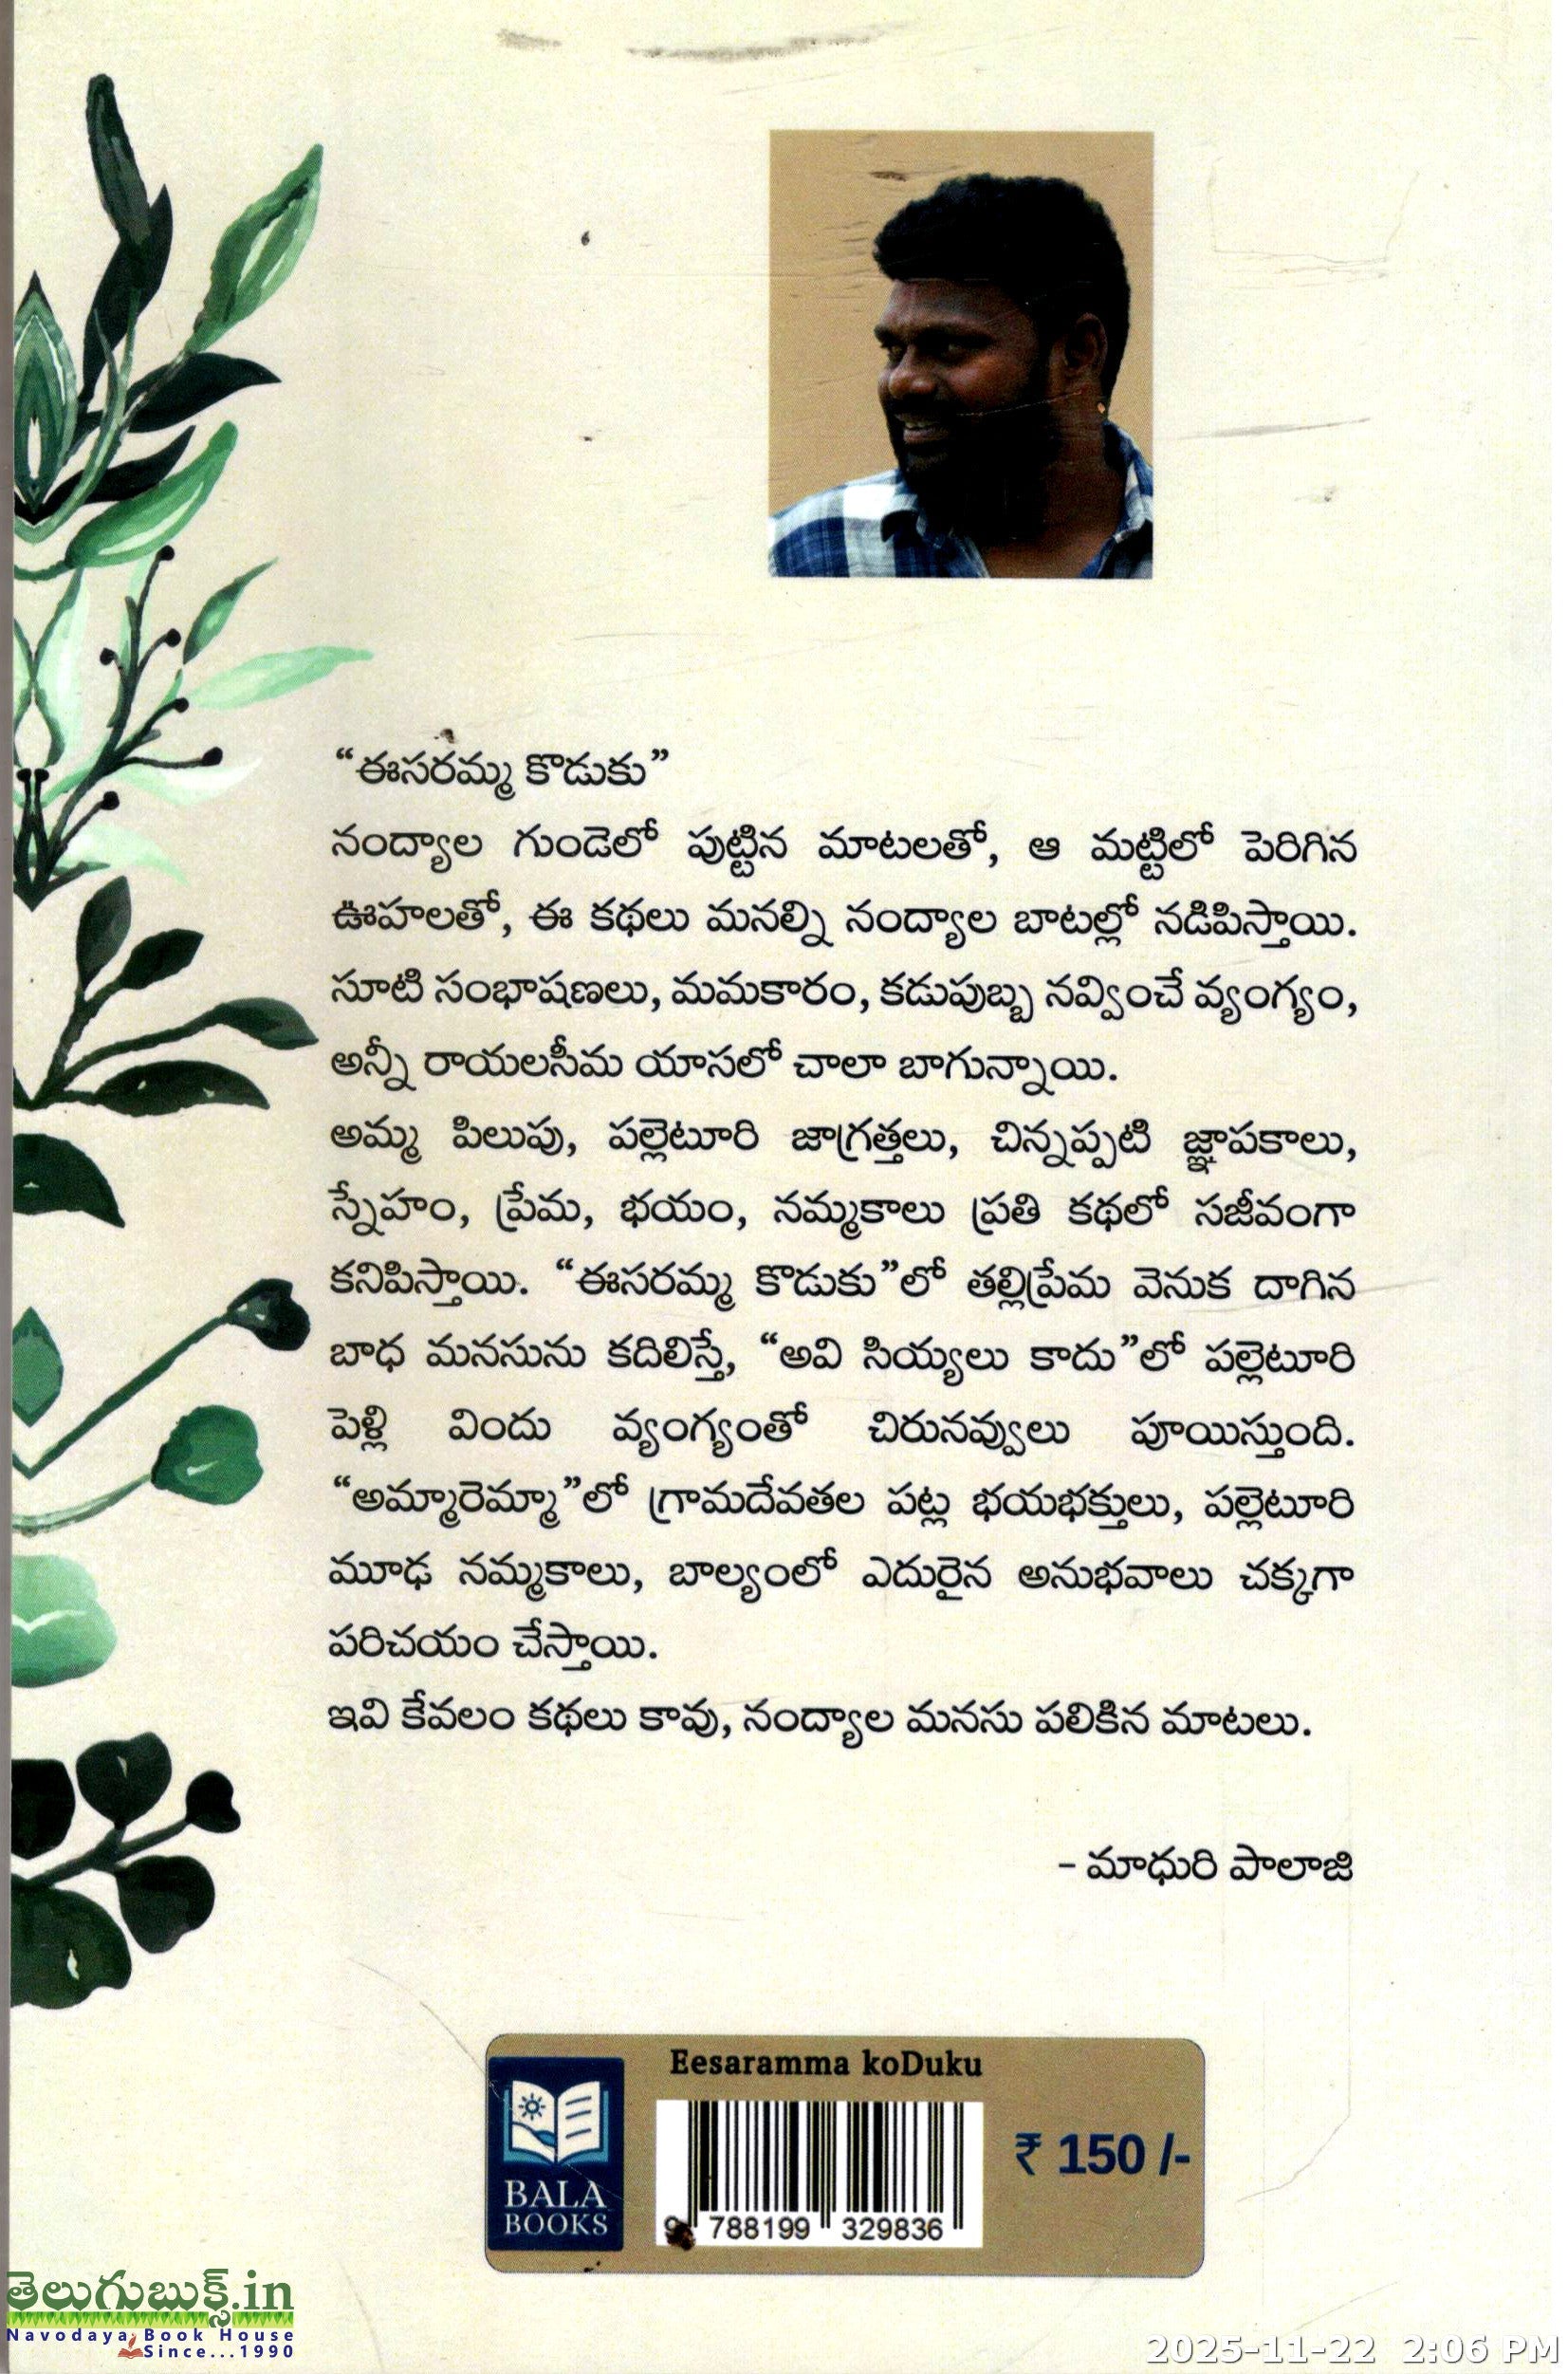 “ఈసరమ్మ కొడుకు”
నంద్యాల గుండెలో పుట్టిన మాటలతో, ఆ మట్టిలో పెరిగిన
ఊహలతో, ఈ కథలు మనల్ని నంద్యాల బాటల్లో నడిపిస్తాయి.
సూటి సంభాషణలు, మమకారం, కడుపుబ్బ నవ్వించే వ్యంగ్యం,
అన్నీ రాయలసీమ యాసలో చాలా బాగున్నాయి.
అమ్మ పిలుపు, పల్లెటూరి జాగ్రత్తలు, చిన్నప్పటి జ్ఞాపకాలు,
స్నేహం, ప్రేమ, భయం, నమ్మకాలు ప్రతి కథలో సజీవంగా
కనిపిస్తాయి. “ఈసరమ్మ కొడుకు”లో తల్లిప్రేమ వెనుక దాగిన
బాధ మనసును కదిలిస్తే, “అవి సియ్యలు కాదు”లో పల్లెటూరి
పెళ్లి విందు వ్యంగ్యంతో చిరునవ్వులు పూయిస్తుంది.
“అమ్మారెమ్మా”లో గ్రామదేవతల పట్ల భయభక్తులు, పల్లెటూరి
మూఢ నమ్మకాలు, బాల్యంలో ఎదురైన అనుభవాలు చక్కగా
పరిచయం చేస్తాయి.
ఇవి కేవలం కథలు కావు, నంద్యాల మనసు పలికిన మాటలు.
- మాధురి పాలాజి
Eesaramma koDuku
₹ 150 /-
BALA
BOOKS
9 788199 329836
తెలుగుబుక్స్.in
Navodaya Book House
Since...1990
2025-11-22 2:06 PM